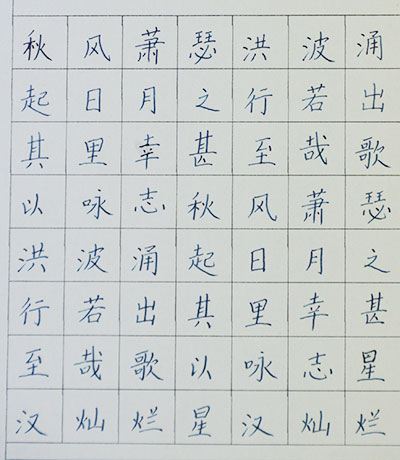 秋风萧瑟洪波涌
起日月之行若出
其里幸甚至哉歌
以咏志秋风萧瑟
洪波涌起日月之
行若出其里幸甚
至哉歌以咏志星
汉灿烂星汉灿烂